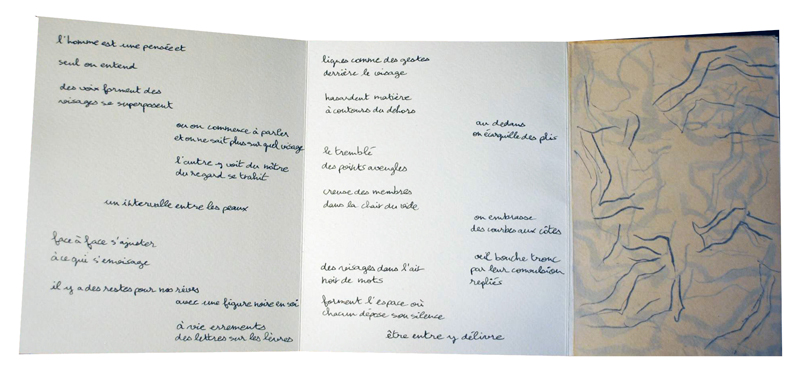 l'homme est une pensée et
seul on entend
des voix forment des
visages se superposent
ou on commence à parler
et on ne sait plus sur quel visage
l'autre y voit du nôtre
du regard se trahit
un intervalle entre les peaux
face à face s'ajuster
à ce qui s'envisage
il y a des restes pour nos rêves
avec une figure noire en soi
à vie errements
des lettres sur les lèvres
lignes comme des gestes
derrière le visage
hasardent matière
à contours du dehors
au dedans
on écarquille des plis
le tremblé
des points aveugles
creuse des membres
dans la clair du vide
on embrasse
des courbes aux côtés
œil bouche tronc
par leur convulsion
repliés
des visages dans l'air
noir de mots
forment l'espace où
chacun dépose son silence
être entre y délivre